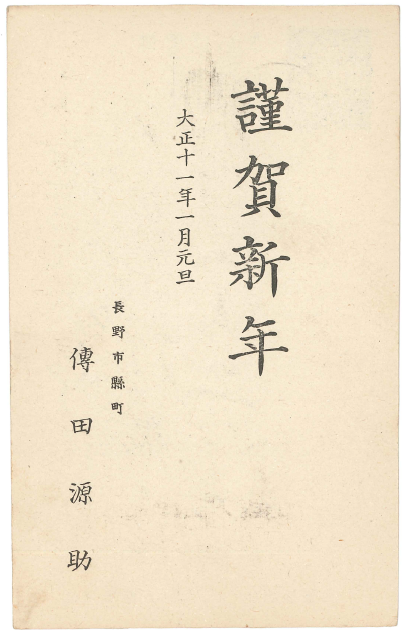 謹賀新年
大正十一年一月元旦
長野市縣町
傳田源助